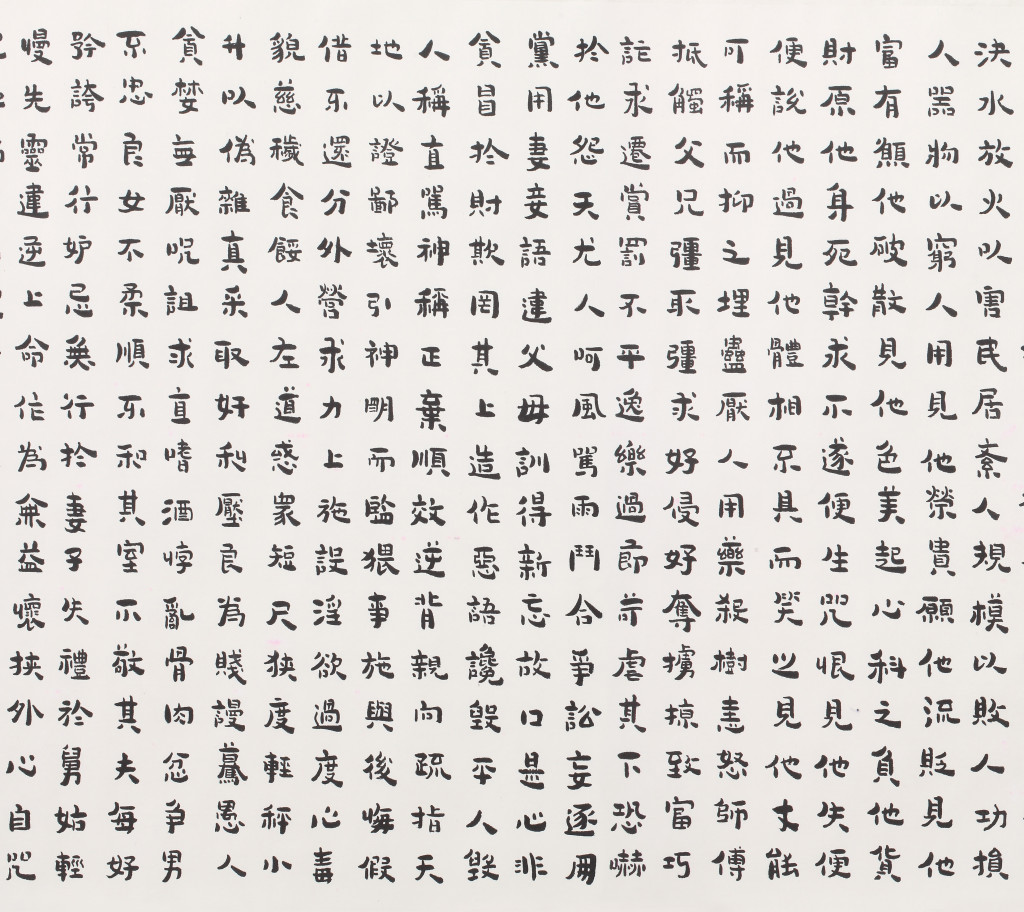 決水放火以害民居紊人規模以敗人功損
人器物以窮人用見他榮貴願他流貶見他
富有願他破散見他色美起心私之負他貨
財原他身死幹求不遂便生咒恨見他失便
便說他過見他體相不具而笑之見他才能
可稱而抑之埋蠱厭人用藥殺樹恚怒師傅
抵觸父兄彊取彊求好侵好奪擄掠致富巧
詐求遷賞罰不平逸樂過節苛虐其下恐嚇
於他怨天尤人呵風罵雨鬥合爭訟妄逐朋
黨用妻妾語違父母訓得新忘故口是心非
貪冒於財欺罔其上造作惡語讒毀平人毀
人稱直罵神稱正棄順效逆背親向疏指天
地以證鄙壞引神明而監猥事施與後悔假
借不還分外營求力上施設淫欲過度心毒
貌慈穢食餧人左道惑眾短尺狹度輕秤小
升以偽雜真采取奸利壓良為賤謾驀愚人
貪婪無厭咒詛求直嗜酒悖亂骨肉忿爭男
不忠良女不柔順不和其室不敬其夫每好
矜誇常行妒忌無行於妻子失禮於舅姑輕
慢先靈違逆上命作為無益懷挾外心自咒